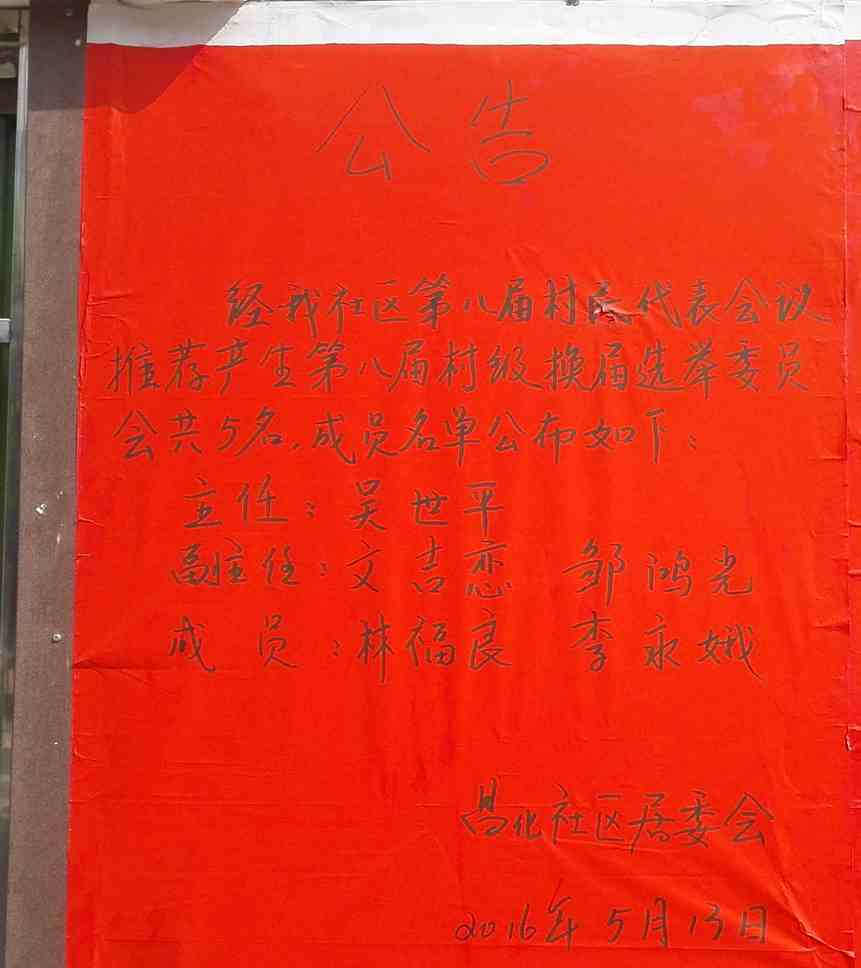 公告
经我社区第八届村民代表会议
推荐产生第八届村级换届选举委员
会共5名,成员名单公布如下:
主任:吴世平
副主任:文吉恋 邹鸿光
成员:林福良 李永娥
昌化社区居委会
2016年5月13日